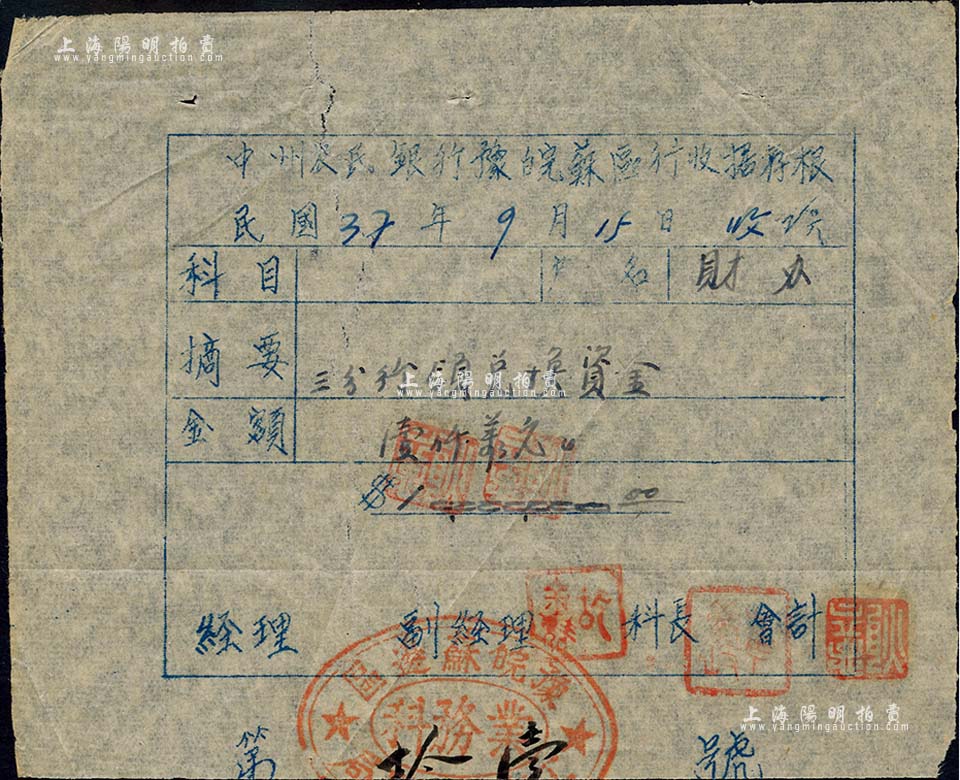 上海陽明拍賣
www.yangmingauction.com
中州农民銀行豫皖蘇區行收据存根
民國37年9月15日 收
科目 户名 財办
摘要 三分 資金
上海陽明拍賣
www.yangmingauction.com
金額 壹仟萬元
00
経理 副経理 科長 會計
豫皖蘇邊區
業務科
第 拾壹 號
上海陽明拍賣
www.yangmingauction.com